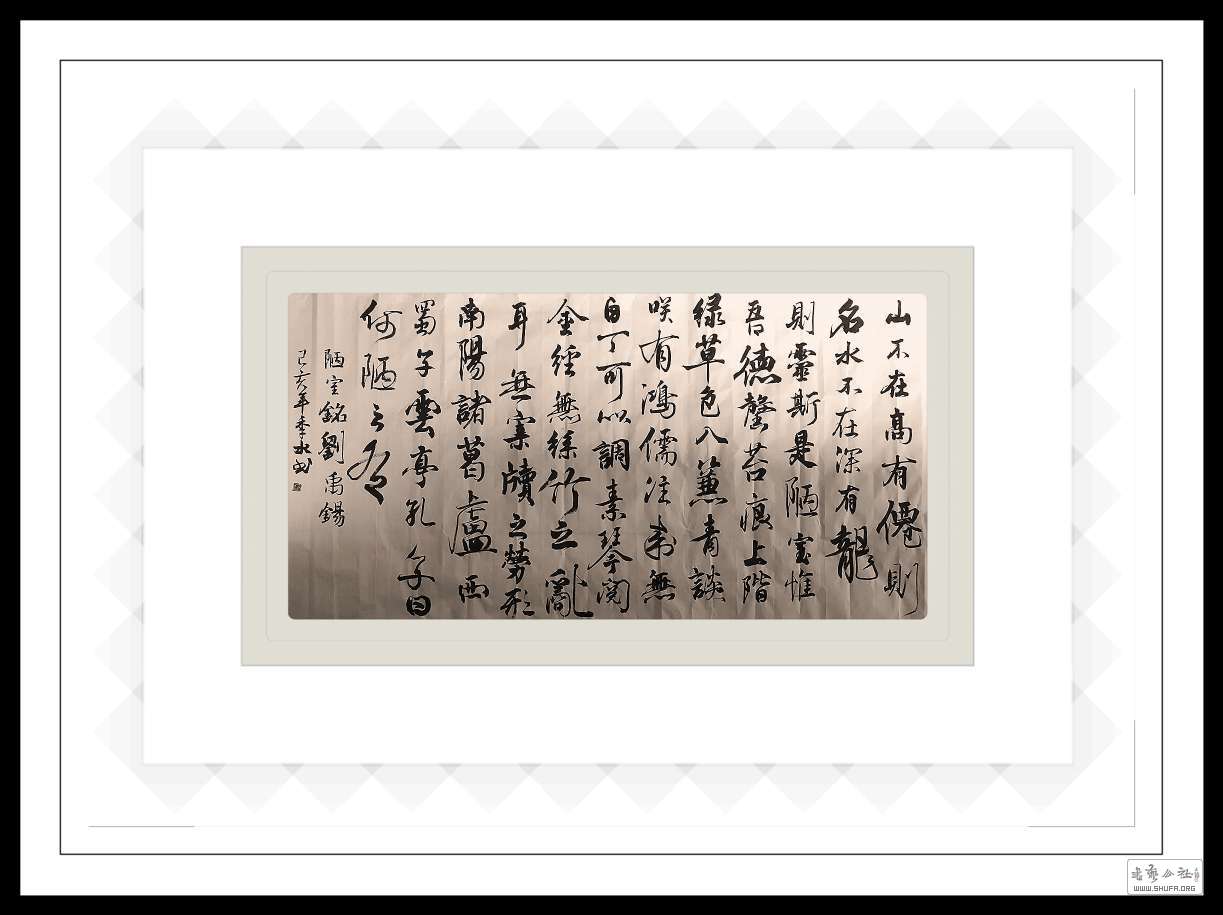 山不在高有僊則
名水不在深有龍
則靈斯是陋室惟
吾德馨苔痕上階
緑草色入簾青談
咲有鴻儒往来無
白丁可以調素琴閲
金經無絲竹之亂
耳無案牘之勞形
南陽諸葛廬西
蜀子雲亭孔子曰
何陋之有
陋室銘劉禹錫
己亥年季水書
WWW.SHUFA.ORG